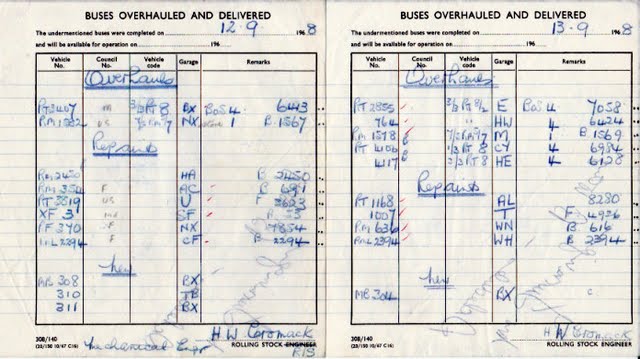 BUSES OVERHAULED AND DELIVERED
The undermentioned buses were completed on 12.9 1968
and will be available for operation on 196
Vehicle No. Council No. Vehicle code Garage Remarks
Overhauls
RT3407 3/3RT8 BX BoS 4 6443
RM1522 NX 1 B 1567
Repaints
RM2450 HA B 2450
RM354 F AC B 691
RT3819 U F 3623
XF 3 SF B 3
RF 370 F NX 7854
RML2294 F CF B 2294
New
MB 308 BX
310 TB
311 BX
308/140
Mechanical Engr
H W Cromack
ROLLING STOCK ENGINEER
BUSES OVERHAULED AND DELIVERED
The undermentioned buses were completed on 13.9 1968
and will be available for operation on 196
Vehicle No. Council No. Vehicle code Garage Remarks
Overhauls
RT 2855 E BoS 4 7058
764 HW 4 6424
RM 1578 M 1 B 1569
RT 4106 CY 4 6984
4117 HE 4 6128
Repaints
RT 1168 AL 8280
1007 T F 4926
RM 636 WN B 616
RML2394 WH B 2394
New
MB 304 BX
308/140
H W Cromack
ROLLING STOCK ENGINEER